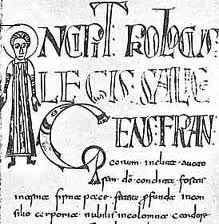 INCIPIT PROLOGUS
LEGIS SALICE
GENS FRAN
corum inclita aucto
dō condita fortis
firma pace profunda in con
silio corporea nobilis incolomna candore